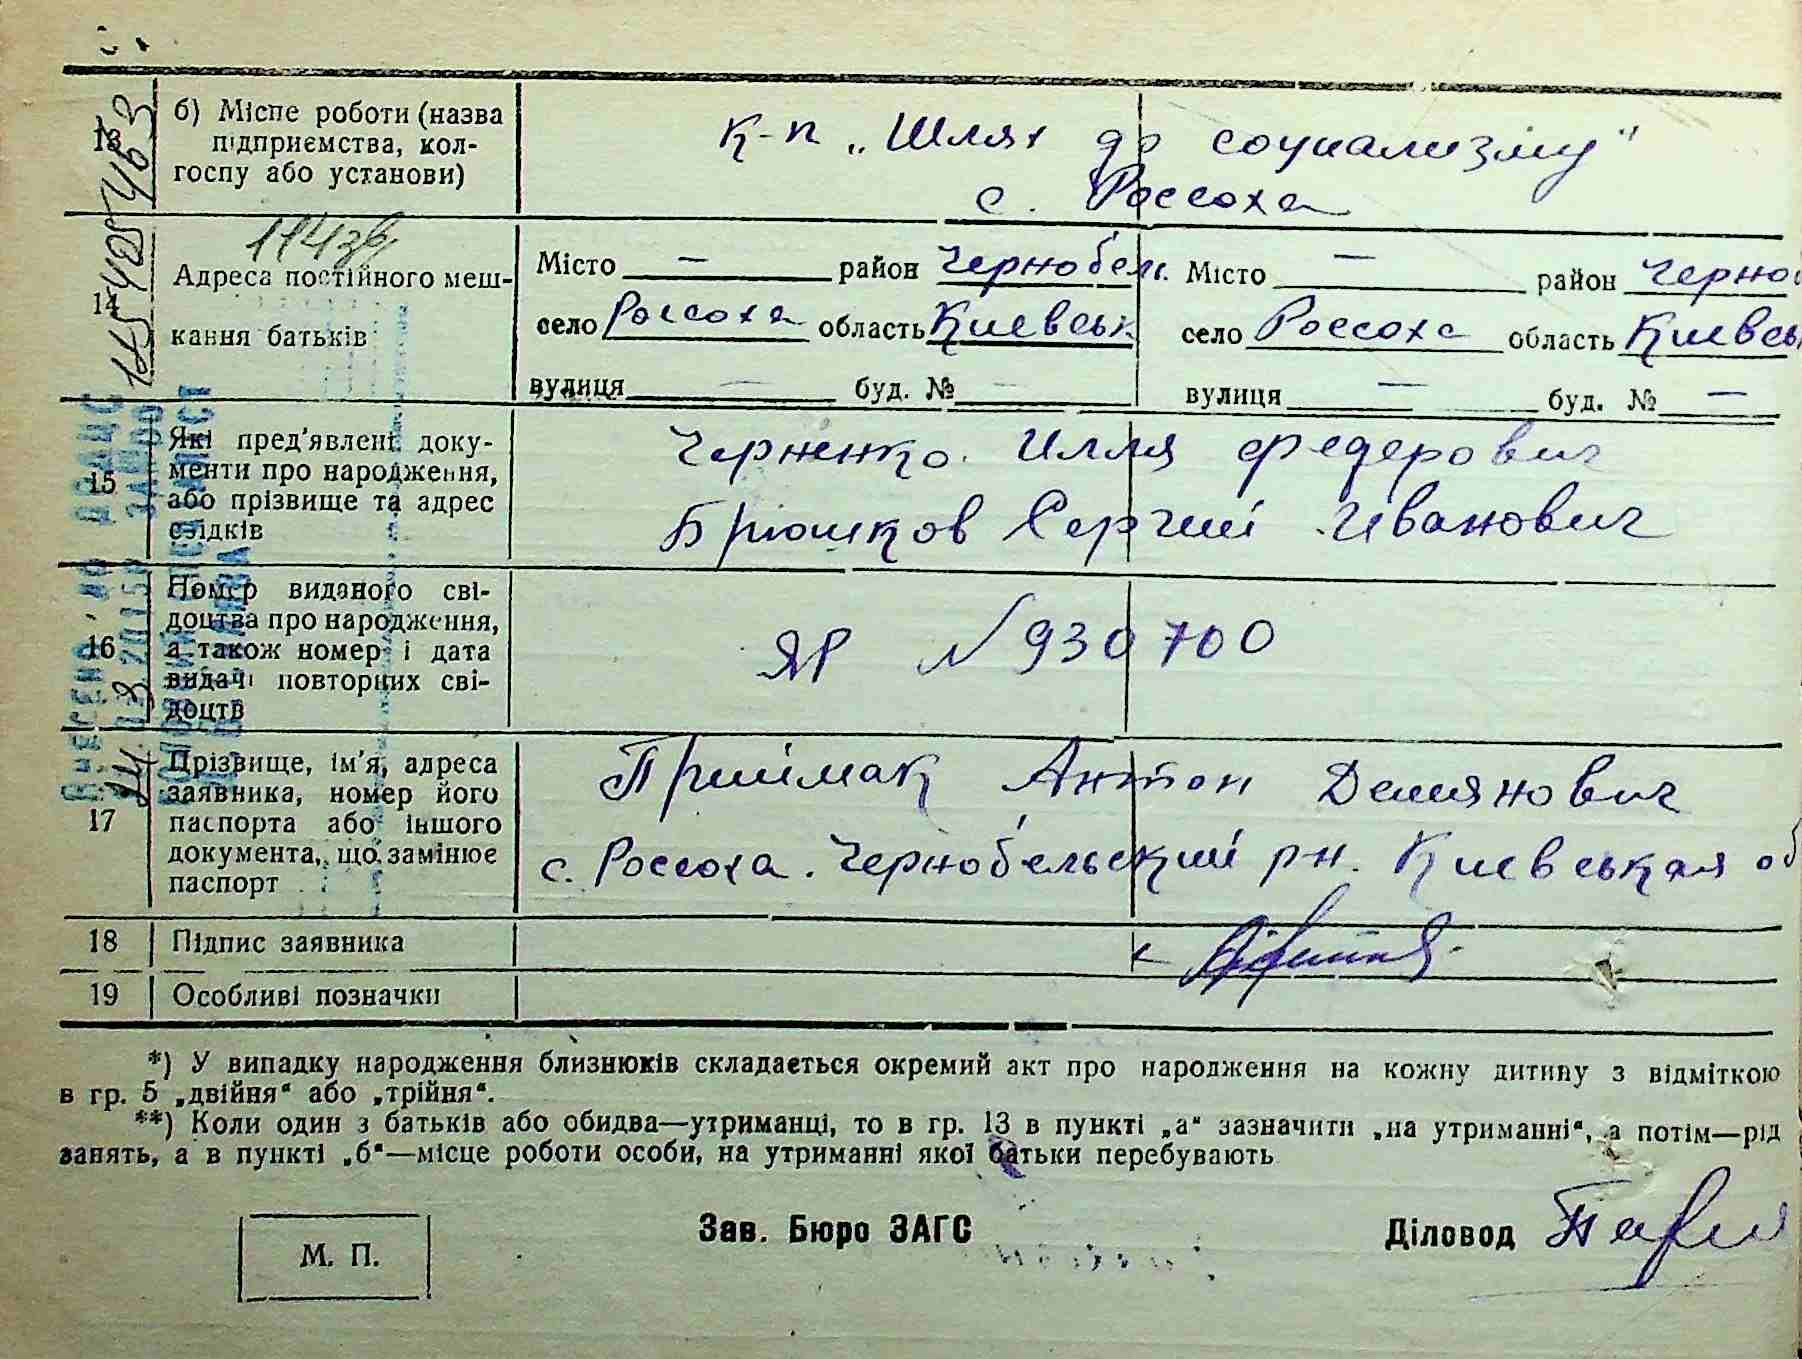 13
б) Місце роботи (назва
підприємства, кол-
госпу або установи)
к-п „Шлях до социализму"
с. Россоха
14
Адреса постійного меш-
кання батьків
Місто — район Чернобельс.
село Россоха область Киевськ
вулиця — буд. № —
Місто — район Черно
село Россоха область Киевсь
вулиця — буд. № —
15
Які пред'явлені доку-
менти про народження,
або прізвище та адрес
свідків
Черненко. Илля Федерович
Брюшков Сергий Иванович
16
Номер виданого сві-
доцтва про народження,
а також номер і дата
видачі повторних сві-
доцтв
ЯР №930700
17
Прізвище, ім'я, адреса
заявника, номер його
паспорта або іншого
документа, що замінює
паспорт
Приймак Антон Демянович
с. Россоха. Чернобельский рн. Киевськая об
18
Підпис заявника
19
Особливі позначки
*) У випадку народження близнюків складається окремий акт про народження на кожну дитину з відміткою
в гр. 5 „двійня" або „трійня".
**) Коли один з батьків або обидва—утриманці, то в гр. 13 в пункті „а" зазначити „на утриманні", а потім—рід
занять, а в пункті „б"—місце роботи особи, на утриманні якої батьки перебувають
М. П.
Зав. Бюро ЗАГС
Діловод